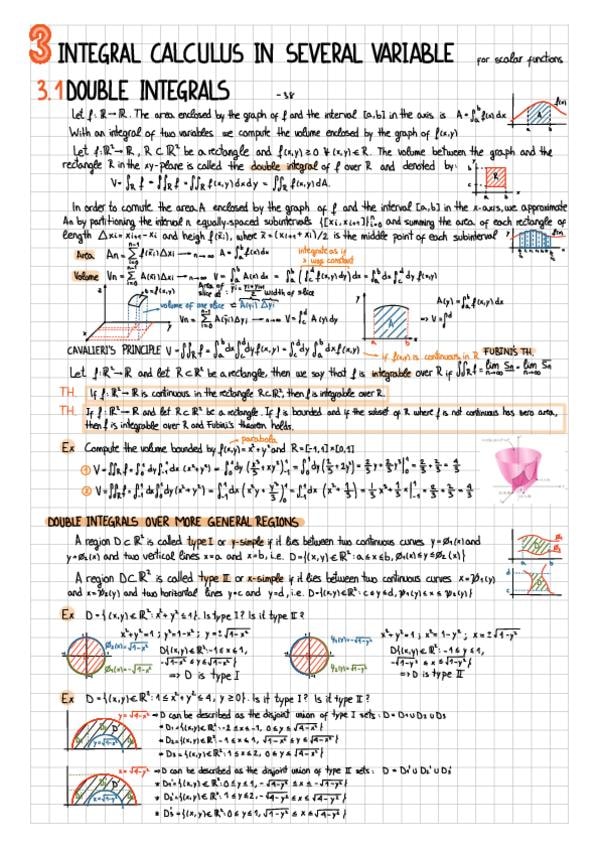 3 INTEGRAL CALCULUS IN SEVERAL VARIABLE for scalar functions
3.1 DOUBLE INTEGRALS
Let f: ℝ → ℝ. The area enclosed by the graph of f and the interval [a,b] in the axis is A = ∫ₐᵇ f(x)dx
With an integral of two variables we compute the volume enclosed by the graph of f(x,y)
Let f: ℝ² → ℝ, R ⊂ ℝ² be a rectangle and f(x,y) ≥ 0 ∀(x,y) ∈ R. The volume between the graph and the
rectangle R in the xy-plane is called the double integral of f over R and denoted by:
V = ∫∫_R f = ∫∫_R f(x,y) dxdy = ∫∫_R f(x,y) dA.
the area A enclosed by the graph of f and the interval [a,b] in the x-axis, we approximate
An by partitioning the interval n equally-spaced subintervals {[xi, xi+1]} and summing the area of each rectangle of
length Δxi = xi+1 − xi and heigh f(x̄i), where x̄ = (xi+1 + xi)/2 is the middle point of each subinterval
Area An = Σ f(x̄i) Δxi → n→∞ A = ∫ₐᵇ f(x) dx
integrate as if
x was constant
Volume Vn = Σ A(x̄i) Δxi → n→∞ V = ∫ₐᵇ A(x) dx = ∫ₐᵇ (∫_c^d f(x,y) dy) dx = ∫ₐᵇ dx ∫_c^d dy f(x,y)
Area of slice
width of slice
volume of one slice = A(ȳi) Δyi
Vn = Σ A(ȳi) Δyi → n→∞ V = ∫_c^d A(y) dy
A(y) = ∫ₐᵇ f(x,y) dx
CAVALIERI'S PRINCIPLE V = ∫∫_R f = ∫ₐᵇ dx ∫_c^d dy f(x,y) = ∫_c^d dy ∫ₐᵇ dx f(x,y)
if f(x,y) is continuous in R FUBINI'S TH.
Let f: ℝ² → ℝ and let R ⊂ ℝ² be a rectangle, then we say that f is integrable over R if ∫∫_R f = lim Sn = lim Sn
TH. If f: ℝ² → ℝ is continuous in the rectangle R ⊂ ℝ², then f is integrable over R.
TH. If f: ℝ² → ℝ and let R ⊂ ℝ² be a rectangle. If f is bounded and if the subset of R where f is not continuous has zero area,
then f is integrable over R and Fubini's theorem holds.
parabola
Ex Compute the volume bounded by f(x,y) = x² + y² and R = [-1,1] × [0,1]
① V = ∫∫_R f = ∫₀¹ dy ∫₋₁¹ dx (x² + y²) = ∫₀¹ dy (x³/3 + xy²)|₋₁¹ = ∫₀¹ dy (2/3 + 2y²) = 2/3 y + 2/3 y³|₀¹ = 2/3 + 2/3 = 4/3
② V = ∫∫_R f = ∫₋₁¹ dx ∫₀¹ dy (x² + y²) = ∫₋₁¹ dx (x²y + y³/3)|₀¹ = ∫₋₁¹ dx (x² + 1/3) = 1/3 x³ + 1/3 x|₋₁¹ = 2/3 + 2/3 = 4/3
DOUBLE INTEGRALS OVER MORE GENERAL REGIONS
A region D ⊂ ℝ² is called type I or y-simple if it lies between two continuous curves y = Ø₁(x) and
y = Ø₂(x) and two vertical lines x=a and x=b, i.e. D = {(x,y) ∈ ℝ²: a ≤ x ≤ b, Ø₁(x) ≤ y ≤ Ø₂(x)}
A region D ⊂ ℝ² is called type II or x-simple if it lies between two continuous curves x = ψ₁(y)
and x = ψ₂(y) and two horizontal lines y=c and y=d, i.e. D = {(x,y) ∈ ℝ²: c ≤ y ≤ d, ψ₁(y) ≤ x ≤ ψ₂(y)}
Ex D = {(x,y) ∈ ℝ²: x² + y² ≤ 1}. Is type I? Is it type II?
x² + y² = 1; y² = 1 − x²; y = ±√1−x²
Ø₂(x) = √1−x²
Ø₁(x) = −√1−x²
D{(x,y) ∈ ℝ²: −1 ≤ x ≤ 1,
−√1−x² ≤ y ≤ √1−x²}
=> D is type I
x² + y² = 1; x² = 1−y²; x = ±√1−y²
D{(x,y) ∈ ℝ²: −1 ≤ y ≤ 1,
−√1−y² ≤ x ≤ √1−y²}
=> D is type II
Ex D = {(x,y) ∈ ℝ²: 1 ≤ x² + y² ≤ 4, y ≥ 0}. Is it type I? Is it type II?
→ D can be described as the disjoint union of type I sets: D = D₁ ∪ D₂ ∪ D₃
* D₁ = {(x,y) ∈ ℝ²: −2 ≤ x ≤ −1, 0 ≤ y ≤ √4−x²}
* D₂ = {(x,y) ∈ ℝ²: −1 ≤ x ≤ 1, √1−x² ≤ y ≤ √4−x²}
* D₃ = {(x,y) ∈ ℝ²: 1 ≤ x ≤ 2, 0 ≤ y ≤ √4−x²}
→ D can be described as the disjoint union of type II sets: D = D₁' ∪ D₂' ∪ D₃'